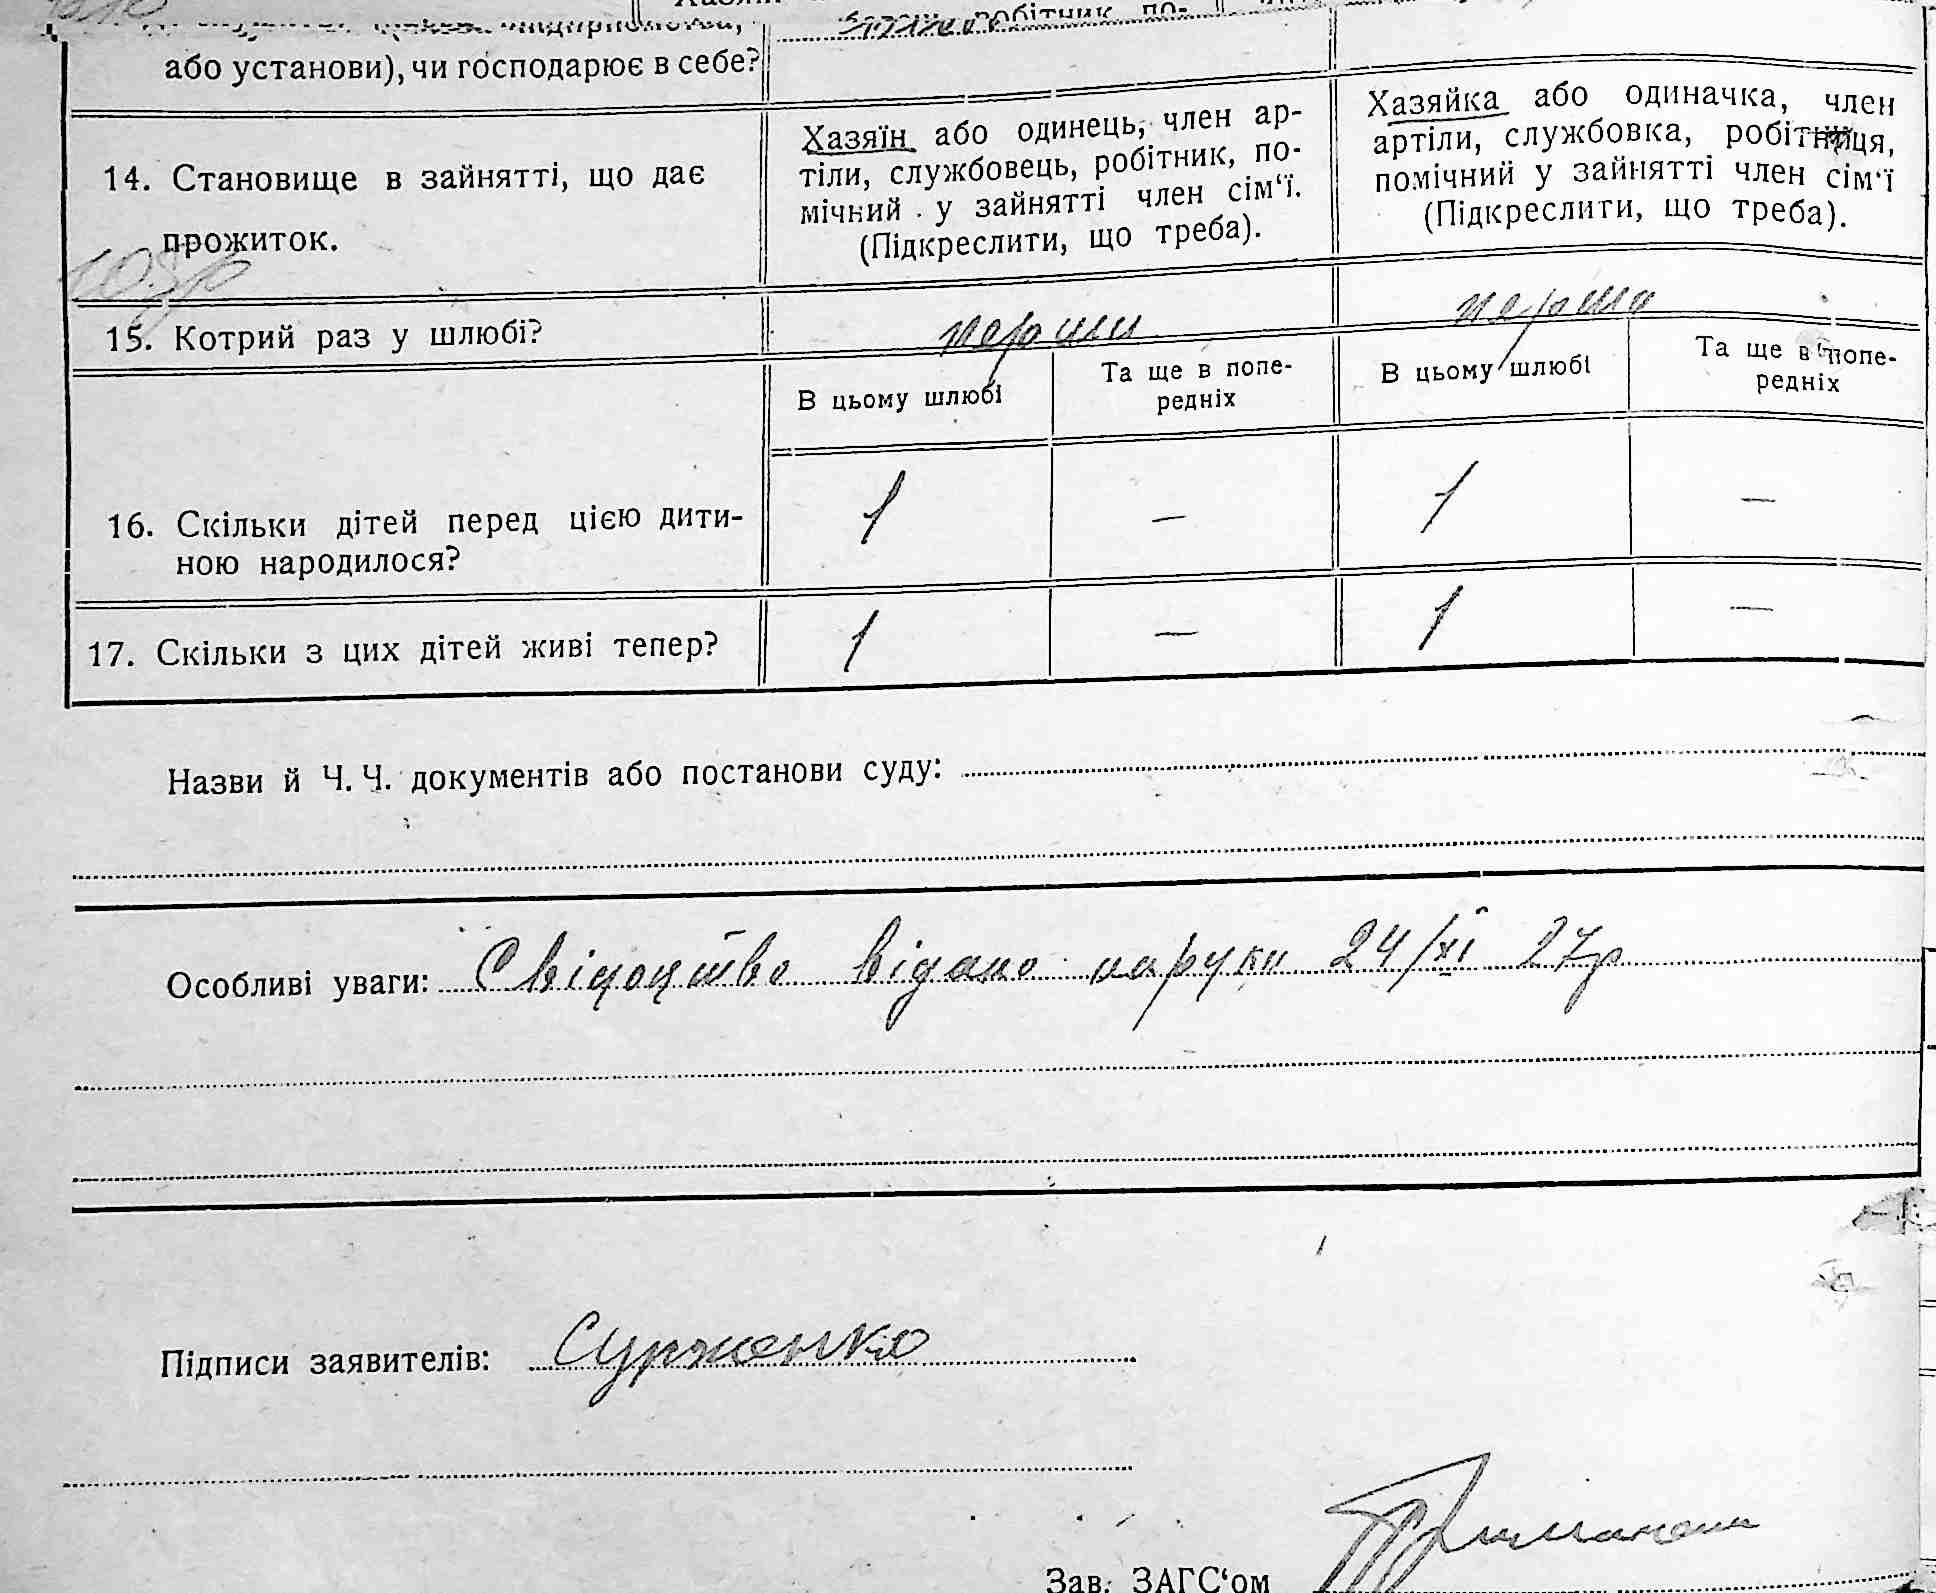 або установи), чи господарює в себе?
14. Становище в зайнятті, що дає
прожиток.
Хазяїн або одинець, член ар-
тіли, службовець, робітник, по-
мічний у зайнятті член сім‘ї.
(Підкреслити, що треба).
Хазяйка або одиначка, член
артіли, службовка, робітниця,
помічний у зайнятті член сім‘ї
(Підкреслити, що треба).
15. Котрий раз у шлюбі?
перший
перший
В цьому шлюбі
Та ще в попе-
редніх
В цьому шлюбі
Та ще в попе-
редніх
16. Скільки дітей перед цією дити-
ною народилося?
1 — 1 —
17. Скільки з цих дітей живі тепер?
1 — 1 —
Назви й Ч. Ч. документів або постанови суду:
Особливі уваги: Свідоцтво відано на руки 24/XI 27р
Підписи заявителів: Сурженко
Зав. ЗАГС‘ом